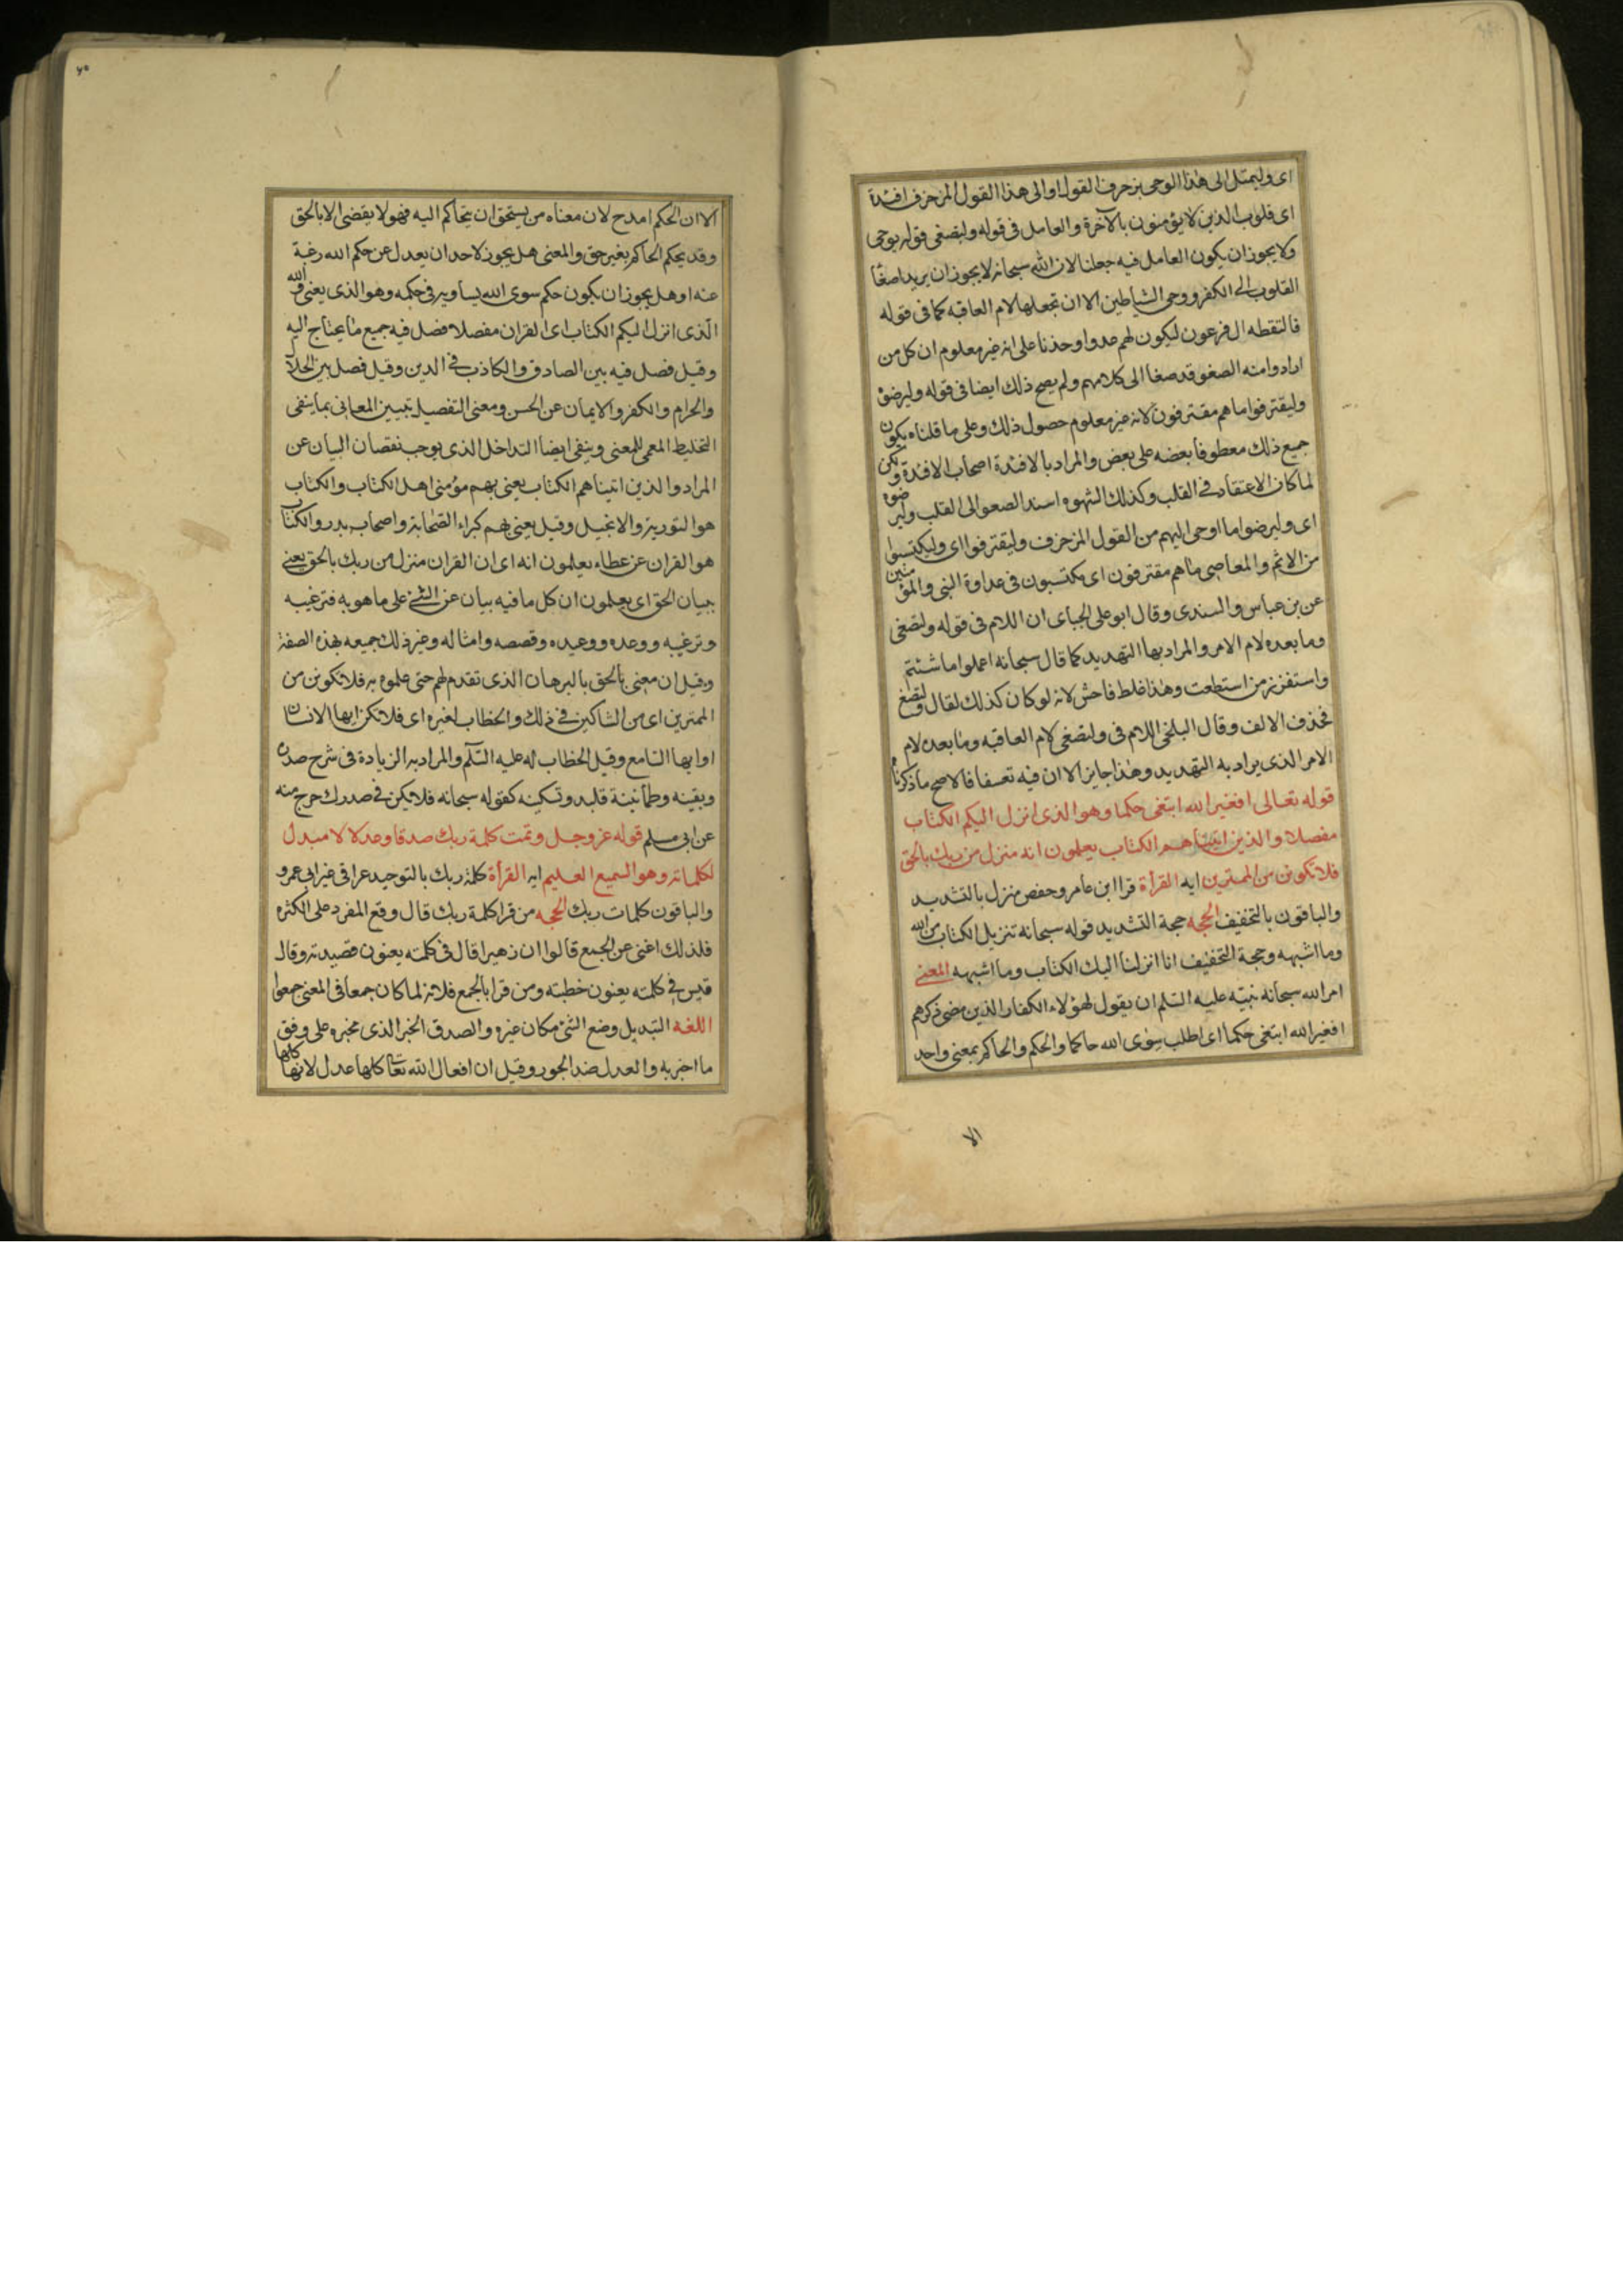 اى وليمتل الى هذا الوحى بزخرف القول او الى هذا القول المزخرف افئدة
اى قلوب الذين لا يؤمنون بالآخرة والعامل فى قوله ولتصغى قوله يوحى
ولا يجوز ان يكون العامل فيه جعلنا لان الله سبحانه لا يجوز ان يريد اصغا
القلوب الى الكفر ووحى الشياطين الا ان تجعلها لام العاقبه كما فى قوله
فالتقطه ال فرعون ليكون لهم عدوا وحذنا على انه غير معلوم ان كل من
ارادوا منه الصغو قد صغا الى كلامهم ولم يصح ذلك ايضا فى قوله وليرضوْ
وليقترفوا ما هم مقترفون لانه غير معلوم حصول ذلك وعلى ما قلناه يكون
جميع ذلك معطوفا بعضه على بعض والمراد بالافئدة اصحاب الافئدة ولكن
لما كان الاعتقاد فى القلب وكذلك الشهوه اسند الصعو الى القلب وليرضوه
اى وليرضوا ما اوحى اليهم من القول المزخرف وليقترفوا اى وليكتسبوا
من الاثم والمعاصى ما هم مقترفون اى مكتسبون فى عداوة النبى والمؤمنين
عن بن عباس والسندى وقال ابو على الجباى ان اللام فى قوله ولتصغى
وما بعده لام الامر والمراد بها التهديد كما قال سبحانه اعملوا ما شئتم
واستفزز من استطعت وهذا غلط فاحش لانه لو كان كذلك لقال ولتصغ
فحذف الالف وقال البلخى اللام فى ولتصغى لام العاقبه وما بعده لام
الامر الذى يراد به التهديد وهذا جايز الا ان فيه تعسفا فالاصح ما ذكرناه
قوله تعالى افغير الله ابتغى حكما وهو الذى انزل اليكم الكتاب
مفصلا والذين اتيناهم الكتاب يعلمون انه منزل من ربك بالحق
فلا تكونن من الممترين ايه القرأة قرا ابن عامر وحفص منزل بالتشديد
والباقون بالتخفيف الحجه حجة التشديد قوله سبحانه تنزيل الكتاب من الله
وما اشبهه وحجة التخفيف انا انزلنا اليك الكتاب وما اشبهه المعنى
امر الله سبحانه نبيّه عليه السّلم ان يقول لهؤلاء الكفار الذين مضى ذكرهم
افغير الله ابتغى حكما اى اطلب سوى الله حاكما والحكم والحاكم بمعنى واحد
الا
٦٠
الا ان الحكم امدح لان معناه من يستحق ان يتحاكم اليه فهو لا يقضى الا بالحق
وقد يحكم الحاكم بغير حق والمعنى هل يجوز لاحد ان يعدل عن حكم الله رغبة
عنه او هل يجوز ان يكون حكم سوى الله يساويه فى حكمه وهو الذى يعنى والله
الّذى انزل اليكم الكتاب اى القران مفصلا فصل فيه جميع ما يحتاج اليه
وقيل فصل فيه بين الصادق والكاذب فى الدين وقيل فصل بين الحلا
والحرام والكفر والايمان عن الحسن ومعنى التفصيل تبيين المعانى بما ينفى
التخليط المعمى للمعنى وينفى ايضا التداخل الذى يوجب نقصان البيان عن
المراد والذين اتيناهم الكتاب يعنى بهم مؤمنى اهل الكتاب والكتاب
هو التورية والانجيل وقيل يعنى بهم كبراء الصّحابة واصحاب بدر والكتاب
هو القران عن عطاء يعلمون انه اى ان القران منزل من ربك بالحق يعنى
ببيان الحق اى يعلمون ان كل ما فيه بيان عن الشئ على ما هو به فترغيبه
وترغيبه ووعده ووعيده وقصصه وامثاله وغير ذلك جميعه بهذه الصفة
وقيل ان معنى بالحق بالبرهان الذى تقدم لهم حتى علموه به فلا تكونن من
الممترين اى من الشاكين فى ذلك والخطاب لغيره اى فلا تكن ايها الانسان
او ايها السّامع وقيل الخطاب له عليه السّلم والمراد به الزيادة فى شرح صدره
ويقينه وطمأنينة قلبه وتسكينه كقوله سبحانه فلا يكن فى صدرك حرج منه
عن ابى مسلم قوله عز وجل وتمت كلمة ربك صدقا وعدلا لا مبدل
لكلماته وهو السميع العليم ايه القرأة كلمة ربك بالتوحيد عراقى غير ابى عمرو
والباقون كلمات ربك الحجه من قرا كلمة ربك قال وقع المفرد على الكثره
فلذلك اغنى عن الجمع قالوا ان زهيرا قال فى كلمته يعنون قصيدته وقال
قيس فى كلمته يعنون خطبته ومن قرا بالجمع فلانه لما كان جمعا فى المعنى جمعوا
اللغه التبديل وضع الشئ مكان غيره والصدق الخبر الذى مخبره على وفق
ما اخبر به والعدل ضد الجور وقيل ان افعال الله تعا كلها عدل لانها كلها